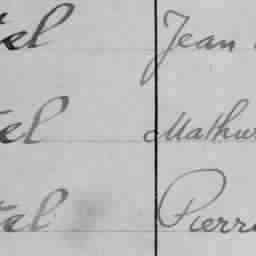 tel Jean
tel Mathur
tel Pierre